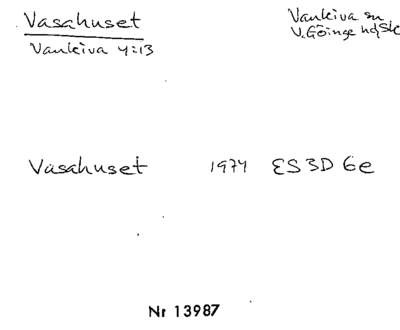 Vasahuset
Vankiva 4:13
Vankiva sn
V.Göinge hd, Sk
Vasahuset 1974 ES 3D 6e
Nr 13987